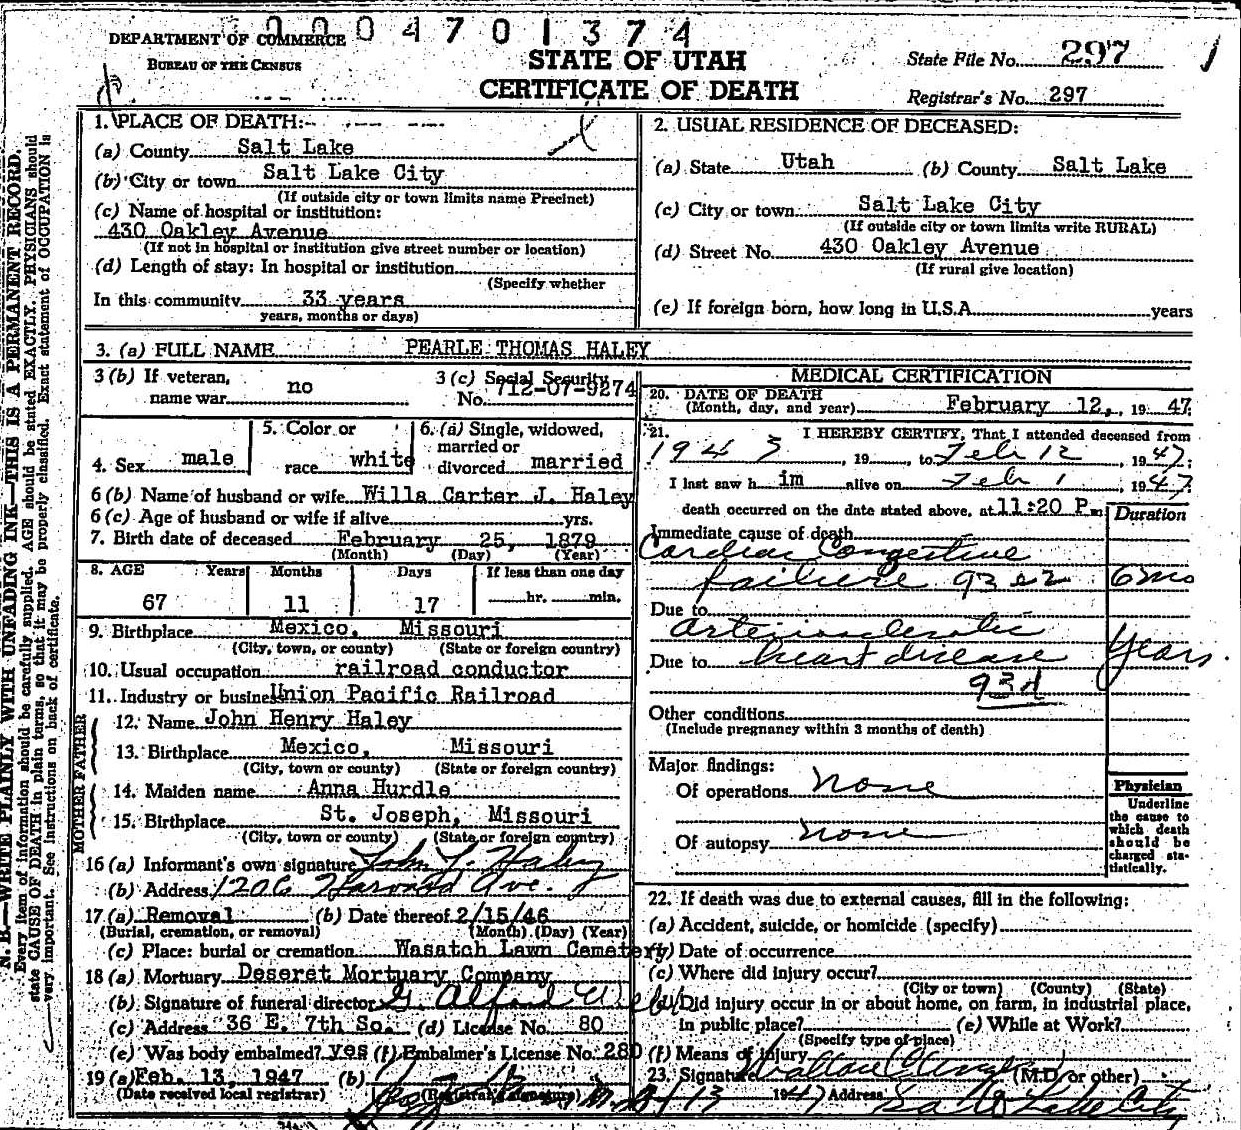 0004701374
DEPARTMENT OF COMMERCE
BUREAU OF THE CENSUS
STATE OF UTAH
CERTIFICATE OF DEATH
State File No. 297
Registrar's No. 297
N. B.—WRITE PLAINLY WITH UNFADING INK—THIS IS A PERMANENT RECORD.
Every item of information should be carefully supplied. AGE should be stated EXACTLY. PHYSICIANS should
state CAUSE OF DEATH in plain terms, so that it may be properly classified. Exact statement of OCCUPATION is
very important. See instructions on back of certificate.
1. PLACE OF DEATH:
(a) County Salt Lake
(b) City or town Salt Lake City
(If outside city or town limits name Precinct)
(c) Name of hospital or institution:
430 Oakley Avenue
(If not in hospital or institution give street number or location)
(d) Length of stay: In hospital or institution
(Specify whether
In this community 33 years
years, months or days)
2. USUAL RESIDENCE OF DECEASED:
(a) State Utah (b) County Salt Lake
(c) City or town Salt Lake City
(If outside city or town limits write RURAL)
(d) Street No. 430 Oakley Avenue
(If rural give location)
(e) If foreign born, how long in U.S.A. years
3. (a) FULL NAME PEARLE THOMAS HALEY
3 (b) If veteran, name war no
3 (c) Social Security No. 712-07-9274
4. Sex male
5. Color or race white
6. (a) Single, widowed, married or divorced married
6 (b) Name of husband or wife Willa Carter J. Haley
6 (c) Age of husband or wife if alive yrs.
7. Birth date of deceased February 25, 1879
(Month) (Day) (Year)
8. AGE Years Months Days If less than one day
67 11 17 hr. min.
9. Birthplace Mexico, Missouri
(City, town, or county) (State or foreign country)
10. Usual occupation railroad conductor
11. Industry or business Union Pacific Railroad
FATHER
12. Name John Henry Haley
13. Birthplace Mexico, Missouri
(City, town or county) (State or foreign country)
MOTHER
14. Maiden name Anna Hurdle
15. Birthplace St. Joseph, Missouri
(City, town or county) (State or foreign country)
16 (a) Informant's own signature John T. Haley
(b) Address 1206 Harvard Ave.
17 (a) Removal (b) Date thereof 2/15/46
(Burial, cremation, or removal) (Month) (Day) (Year)
(c) Place: burial or cremation Wasatch Lawn Cemetery
18 (a) Mortuary Deseret Mortuary Company
(b) Signature of funeral director
(c) Address 36 E. 7th So. (d) License No. 80
(e) Was body embalmed? yes (f) Embalmer's License No. 280
19 (a) Feb. 13, 1947 (b)
(Date received local registrar) (Registrar's signature)
MEDICAL CERTIFICATION
20. DATE OF DEATH
(Month, day, and year) February 12, 1947
21. I HEREBY CERTIFY, That I attended deceased from
1943, 19 , to Feb 12, 1947;
I last saw him alive on Feb 1, 1947
death occurred on the date stated above, at 11:20 P.m.
Duration
Immediate cause of death
Cardiac Congestive
failure 93 e2 6 mo
Due to
Arteriosclerotic
Due to heart disease Years.
93d
Other conditions
(Include pregnancy within 3 months of death)
Major findings:
Of operations none
Of autopsy none
Physician
Underline
the cause to
which death
should be
charged sta-
tistically.
22. If death was due to external causes, fill in the following:
(a) Accident, suicide, or homicide (specify)
(b) Date of occurrence
(c) Where did injury occur?
(City or town) (County) (State)
(d) Did injury occur in or about home, on farm, in industrial place,
in public place? (e) While at Work?
(Specify type of place)
(f) Means of injury
23. Signature Wallace (M.D. or other)
2/13 1947 Address Salt Lake City